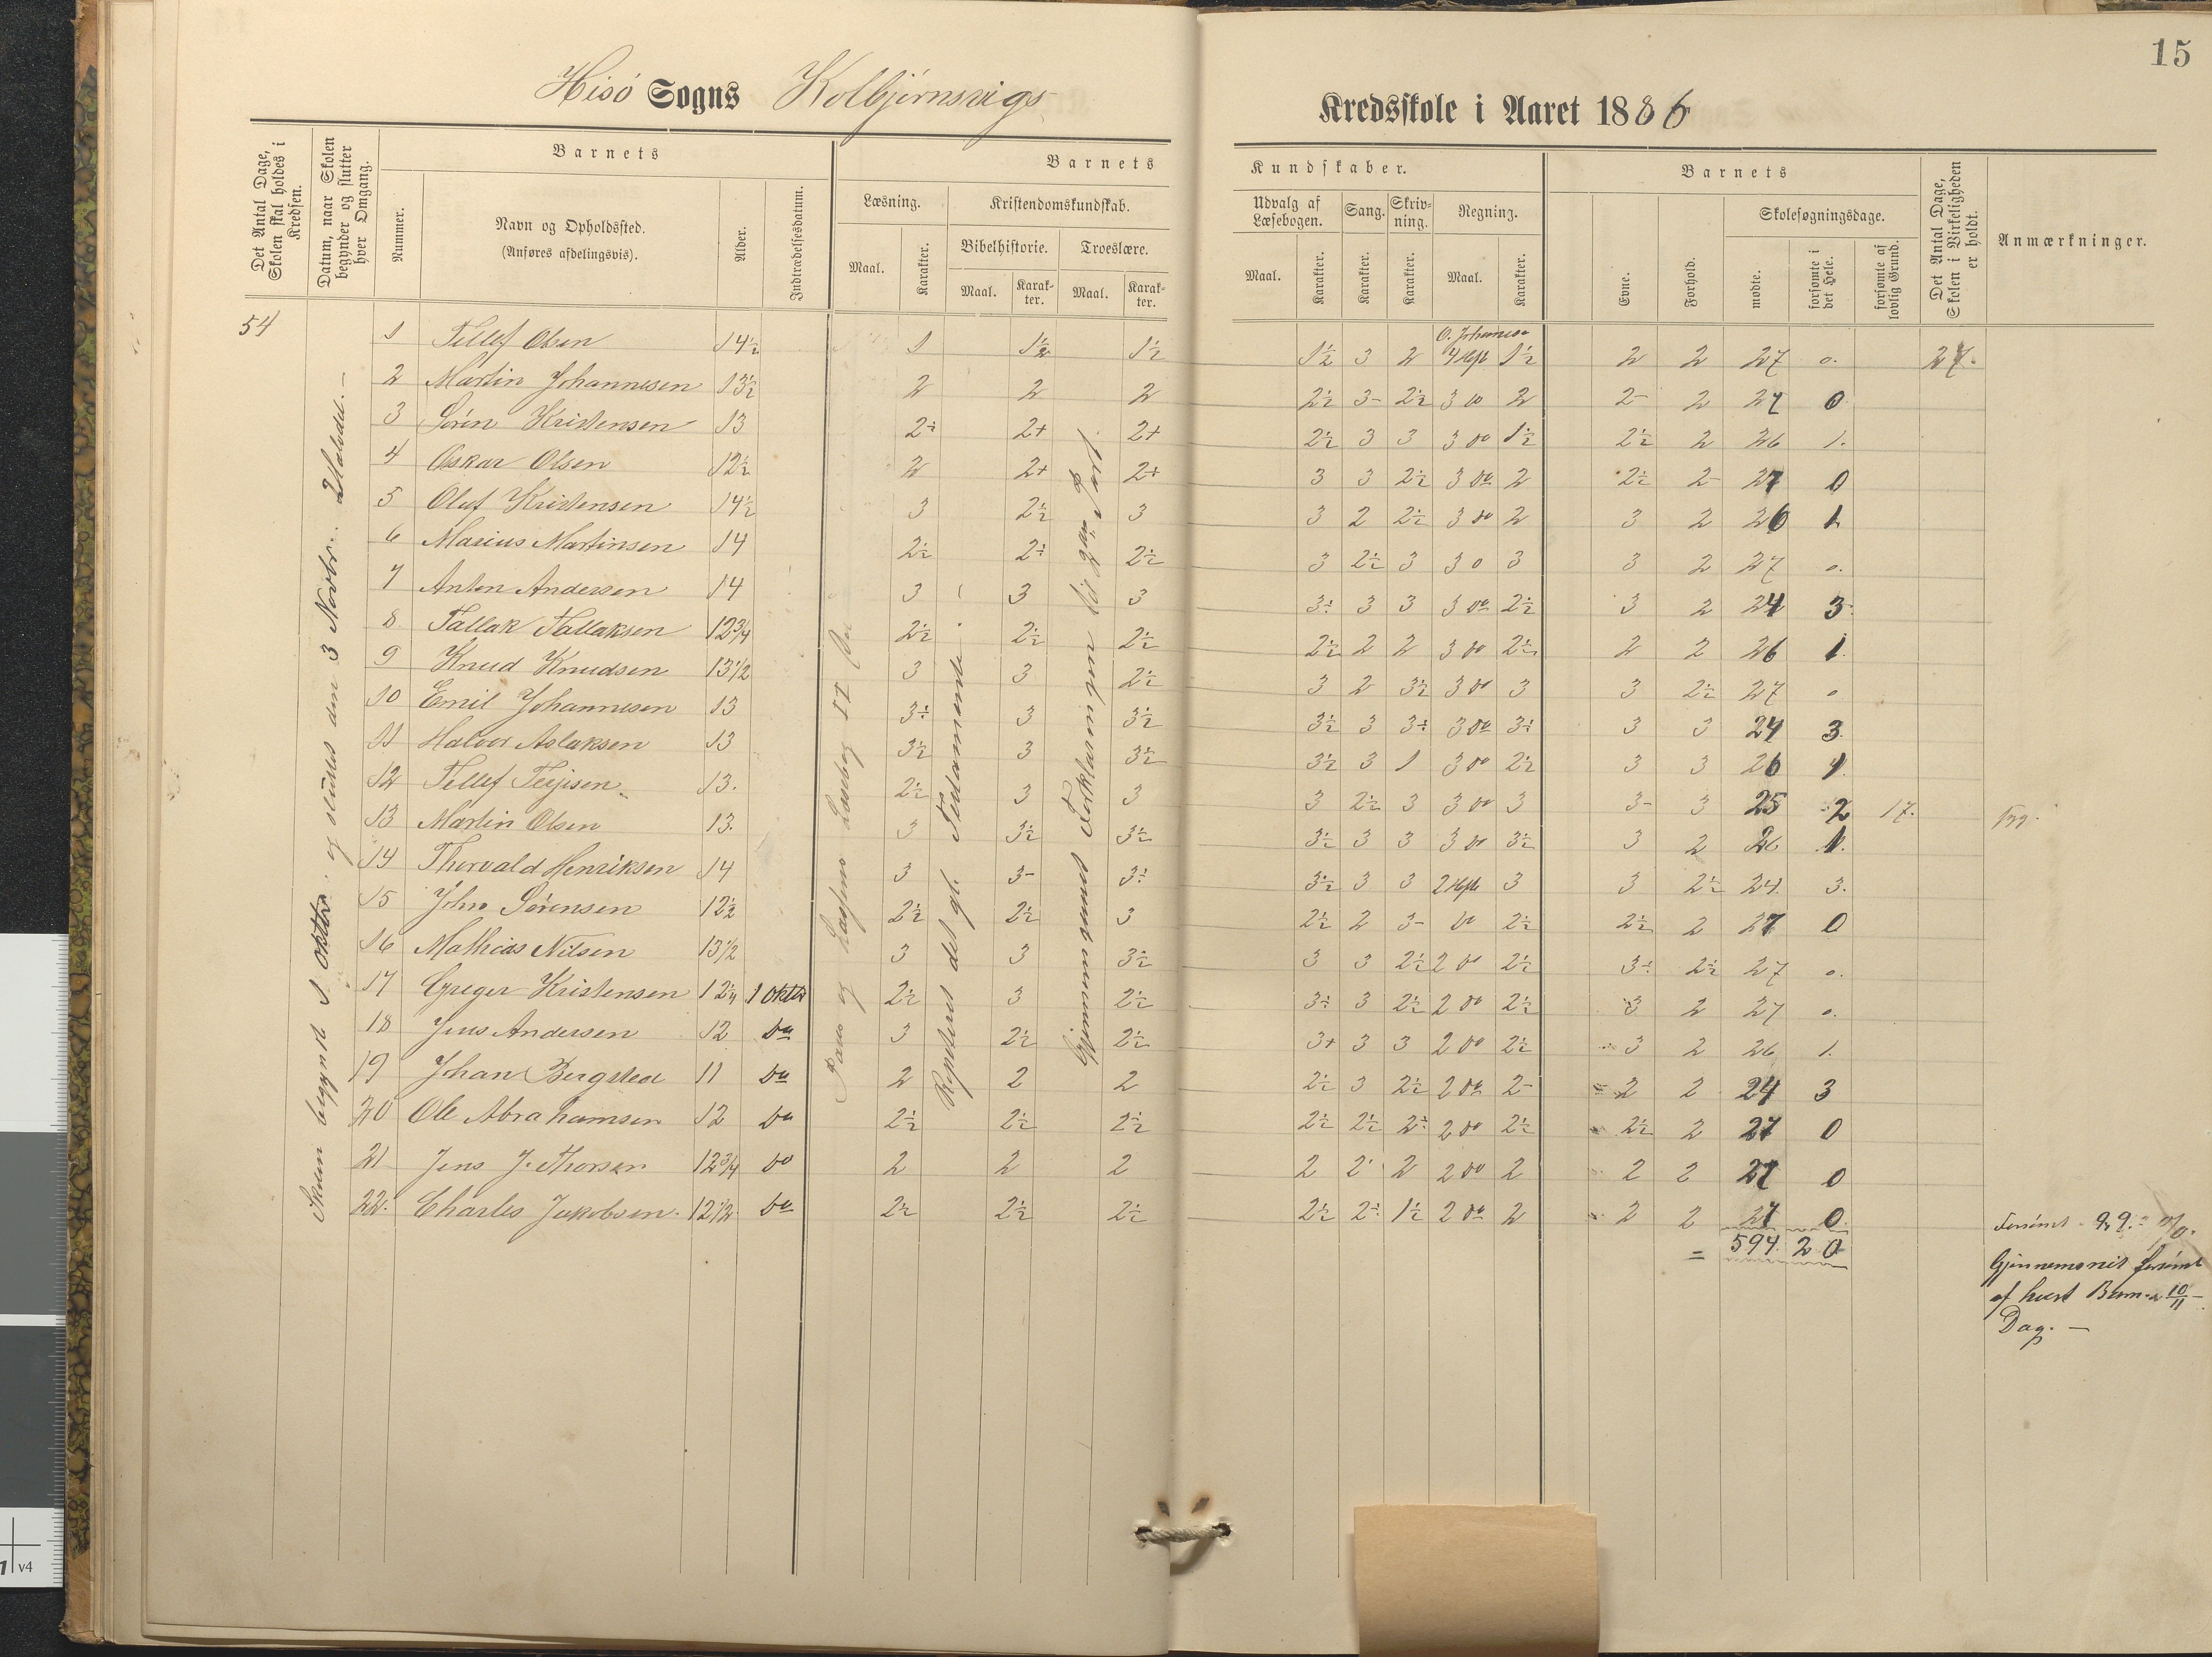 15
Hisö Sogns Kolbjörnsvigs
Kredsskole i Aaret 1886
Det Antal Dage, Skolen skal holdes i Kredsen.
Datum, naar Skolen begynder og slutter hver Omgang.
Barnets
Nummer.
Navn og Opholdssted.
(Anføres afdelingsvis).
Alder.
Indtrædelsesdatum.
Barnets
Læsning.
Maal.
Karakter.
Kristendomskundskab.
Bibelhistorie.
Maal.
Karakter.
Troeslære.
Maal.
Karakter.
Kundskaber.
Udvalg af Læsebogen.
Maal.
Karakter.
Sang.
Karakter.
Skrivning.
Karakter.
Regning.
Maal.
Karakter.
Barnets
Evne.
Forhold.
Skolesøgningsdage.
mødte.
forsømte i det Hele.
forsømte af lovlig Grund.
Det Antal Dage, Skolen i Virkeligheden er holdt.
Anmærkninger.
54
O. Johannesen
1 Tellef Olsen 14½ 1 1½ 1½ 1½ 3 2 4 Hft 1½ 2 2 27 0. 27.
2 Martin Johannesen 13½ 2 2 2 2½ 3- 2½ 3 do 2 2- 2 27 0
3 Sörin Kristensen 13 2÷ 2+ 2+ 2½ 3 3 3 do 1½ 2½ 2 26 1.
4 Oskar Olsen 12½ 2 2+ 2+ 3 3 2½ 3 do 2 2½ 2- 27 0
5 Oluf Kristensen 14½ 3 2½ 3 3 2 2½ 3 do 2 3 2 26 1
6 Marius Martinsen 14 2½ 2÷ 2½ 3 2½ 3 3 0 3 3 2 27 0.
7 Anton Andersen 14 3 3 3 3÷ 3 3 3 do 2½ 3 2 24 3
8 Tallak Tallaksen 12¾ 2½ 2½ 2½ 2½ 2 2 3 do 2½ 2 2 26 1.
9 Knud Knudsen 13½ 3 3 2½ 3 2 3½ 3 do 3 3 2½ 27 0
10 Emil Johannesen 13 3÷ 3 3½ 3½ 3 3÷ 3 do 3÷ 3 3 24 3.
11 Halvor Aslaksen 13 3½ 3 3½ 3½ 3 1 3 do 2½ 3 3 26 1.
12 Tellef Terjisen 13. 2½ 3 3 3 2½ 3 3 do 3 3- 3 25 2 17.
13 Martin Olsen 13. 3 3½ 3½ 3½ 3 3 3 do 3½ 3 2 26 1.
14 Thorvald Henriksen 14 3 3- 3÷ 3½ 3 3 2 Hft 3 3 2½ 24 3.
15 John Sörensen 12½ 2½ 2½ 3 2½ 2 3- do 2½ 2½ 2 27 0
16 Mathias Nilsen 13½ 3 3 3½ 3 3 2½ 2 do 2½ 3÷ 2½ 27 0.
17 Greger Kristensen 12¼ 1 Oktbr 2½ 3 2½ 3÷ 3 2½ 2 do 2½ 3 2 27 0.
18 Jens Andersen 12 do 3 2½ 2½ 3+ 3 3 2 do 2½ 3 2 26 1.
19 Johan Bergsted 11 do 2 2 2 2½ 3 2½ 2 do 2- 2 2 24 3
20 Ole Abrahamsen 12 do 2½ 2½ 2½ 2½ 2½ 2÷ 2 do 2½ 2½ 2 27 0
21 Jens J. Thorsen 12¾ do 2 2 2 2 2 2 2 do 2 2 2 27 0
22. Charles Jakobsen. 12½ do 2½ 2½ 2½ 2½ 2÷ 1½ 2 do 2 2 2 27 0.
= 594 20
Skolen begyndte 1 Oktbr. og sluttes den 3 Novbr. 2 Halvdel. –
og Læsebog II
Repeteret det gl. Testamente.
Gjennemgaaet samme Forklaring som
%.
Gjennemsnit forsömt
af hvert Barn = 10/11 –
Dag. –
v4